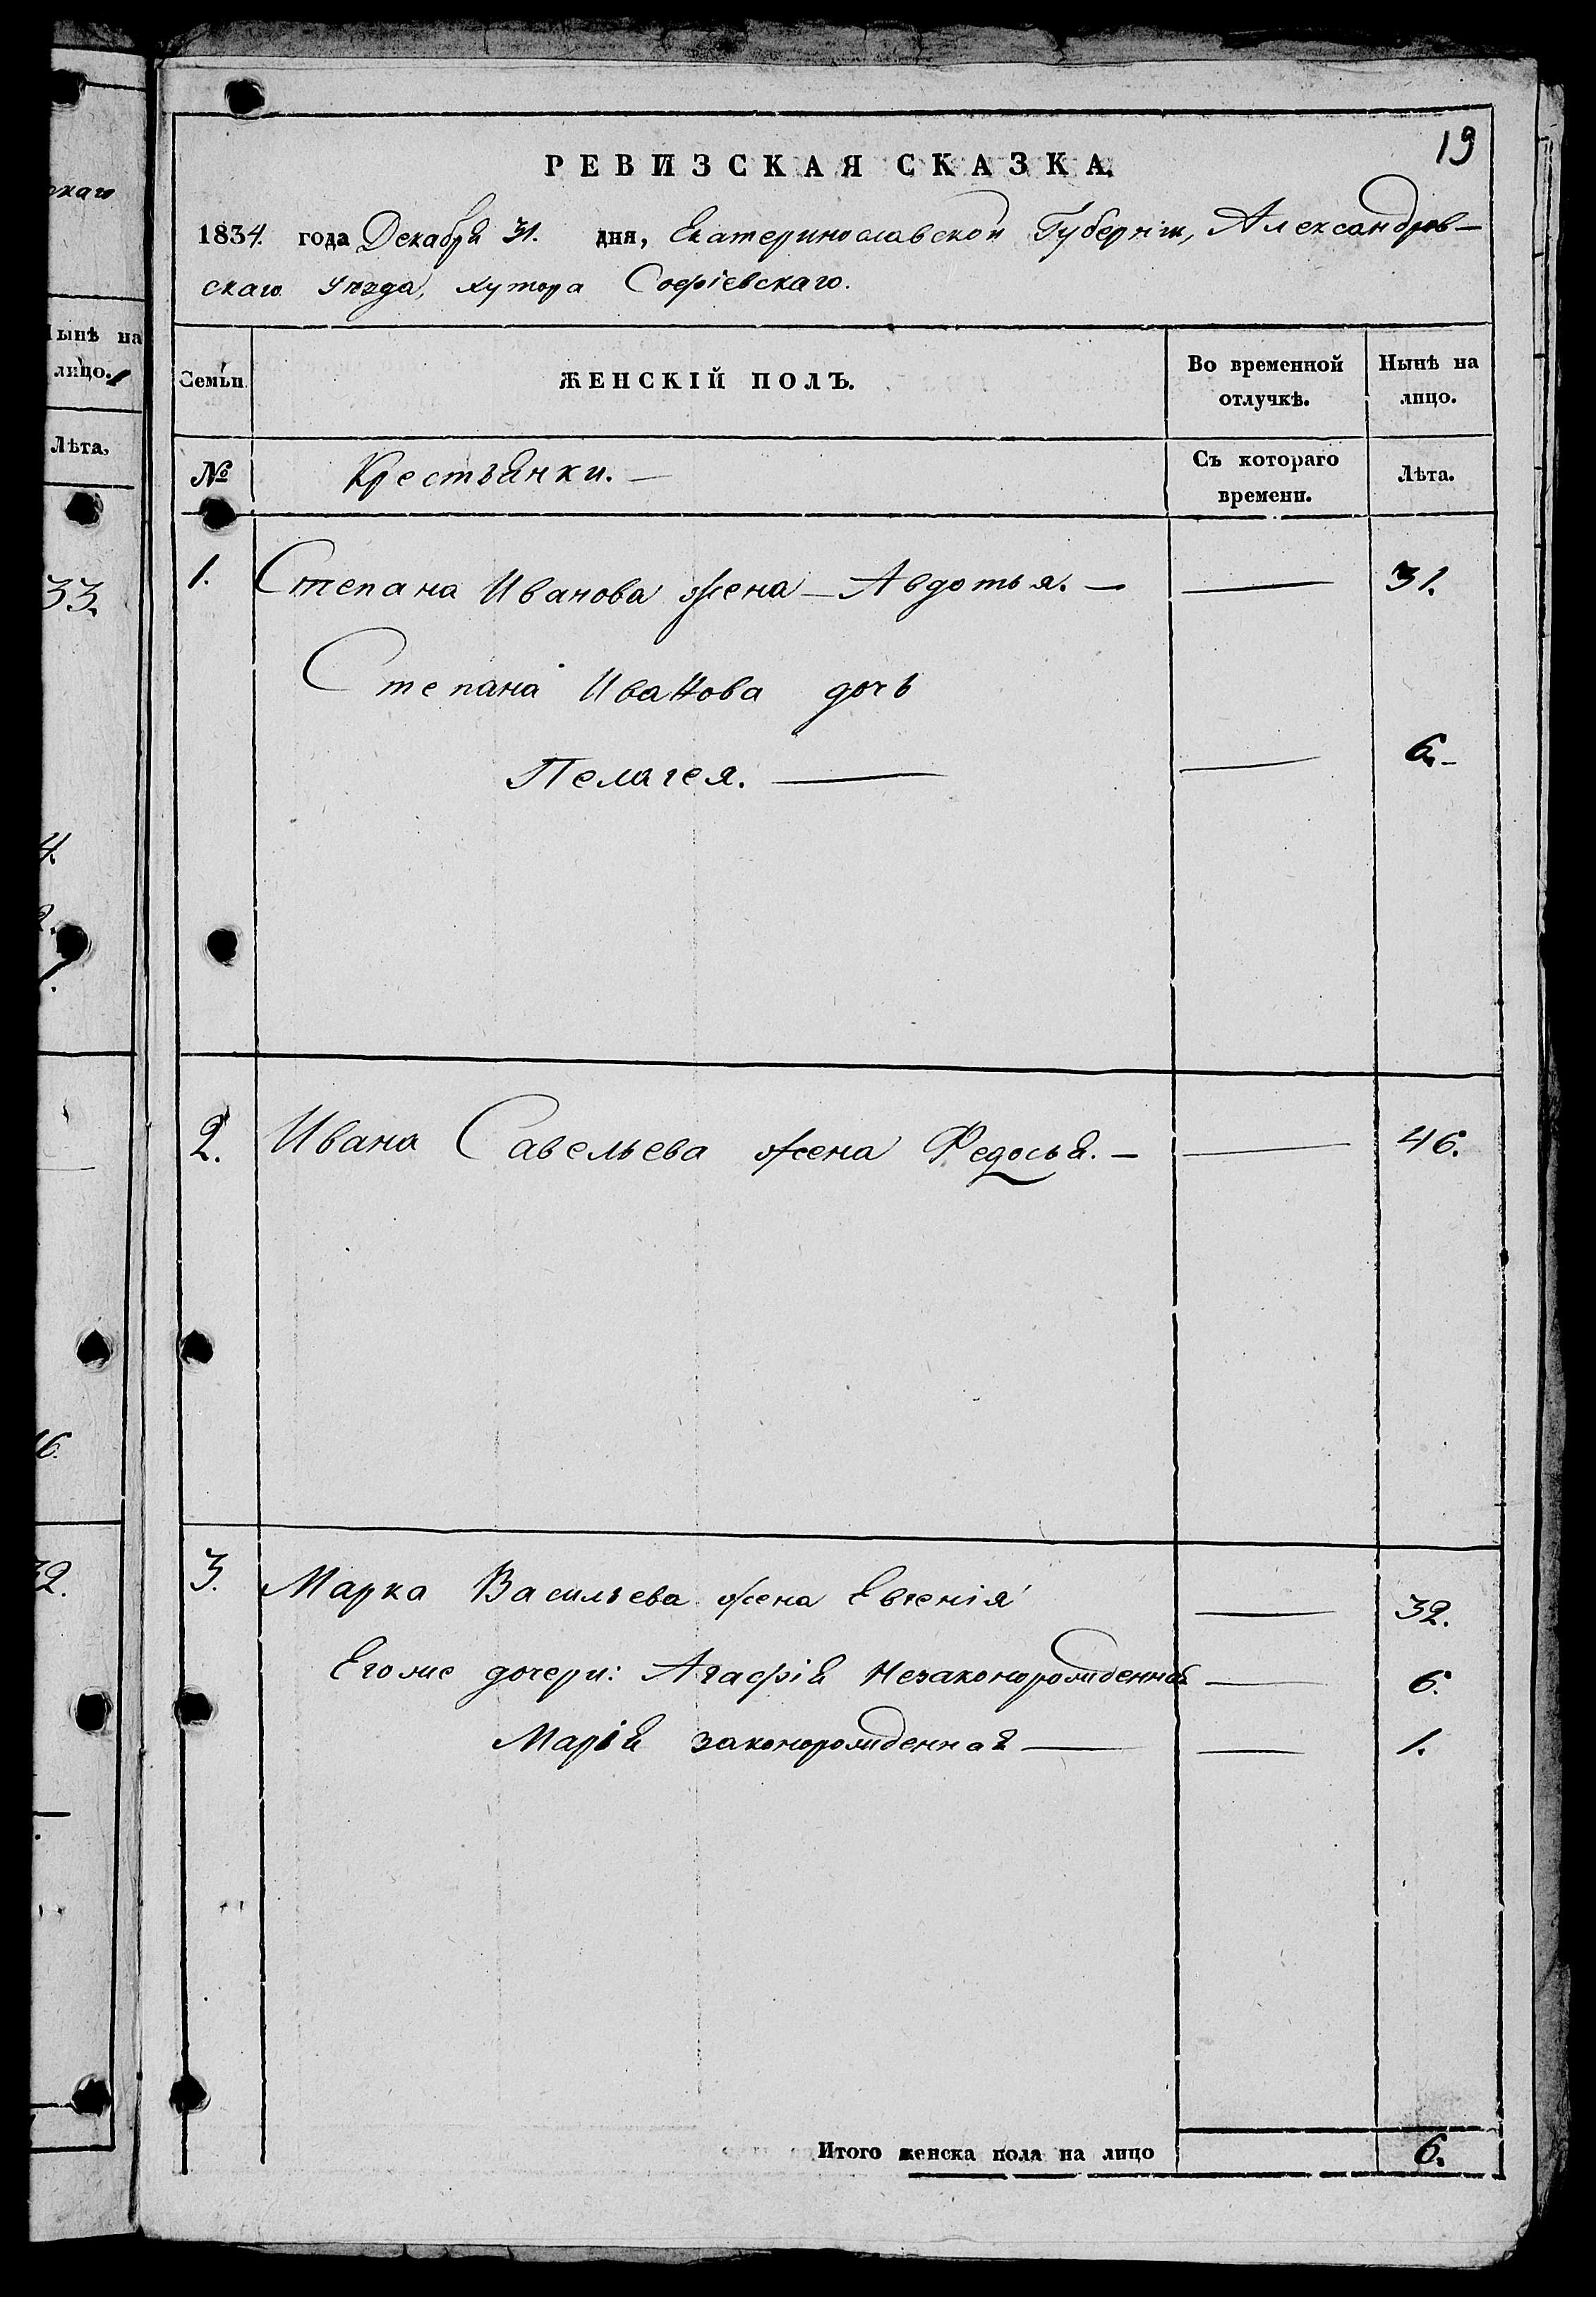 19
РЕВИЗСКАЯ СКАЗКА.
1834. года Декабря 31. дня, Екатеринославской Губерніи, Александров-
скаго уѣзда, хутора Софіевскаго.
Семьи. ЖЕНСКІЙ ПОЛЪ. Во временной отлучкѣ. Нынѣ на лицо.
№ Крестьянки. — Съ котораго времени. Лѣта.
1. Степана Иванова жена — Авдотья. — — 31.
Степана Иванова дочь
Пелагея. — — 6. –
2. Ивана Савельева жена Федосья. — — 46.
3. Марка Васильева жена Евгенія — 32.
Егоже дочери: Агафія Незаконорожденная — 6.
Марія законорожденная — — 1.
Итого женска пола на лицо 6.
скаго
Нынѣ на
лицо.
Лѣта.
33.
4.
16.
32.